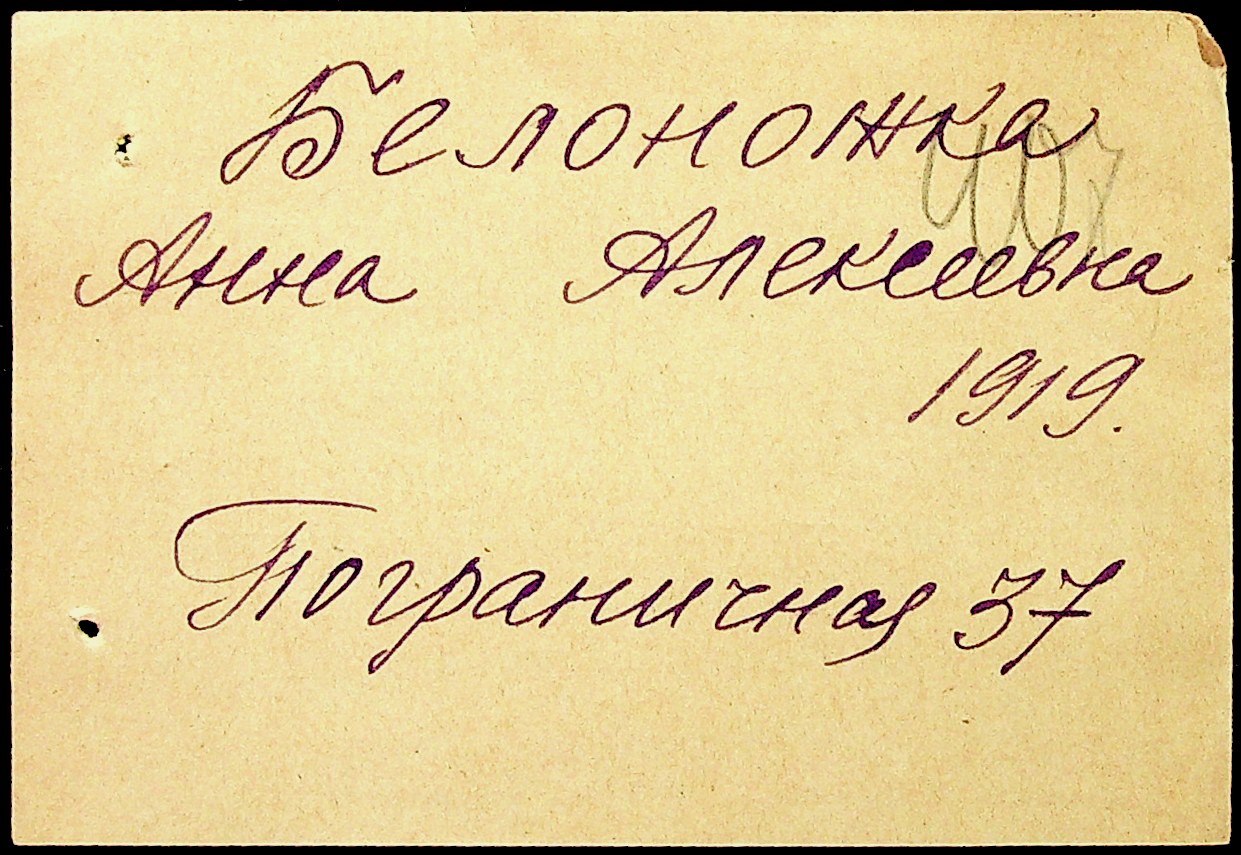 Белоножка
407
Анна Алексеевна
1919.
Пограничная 37